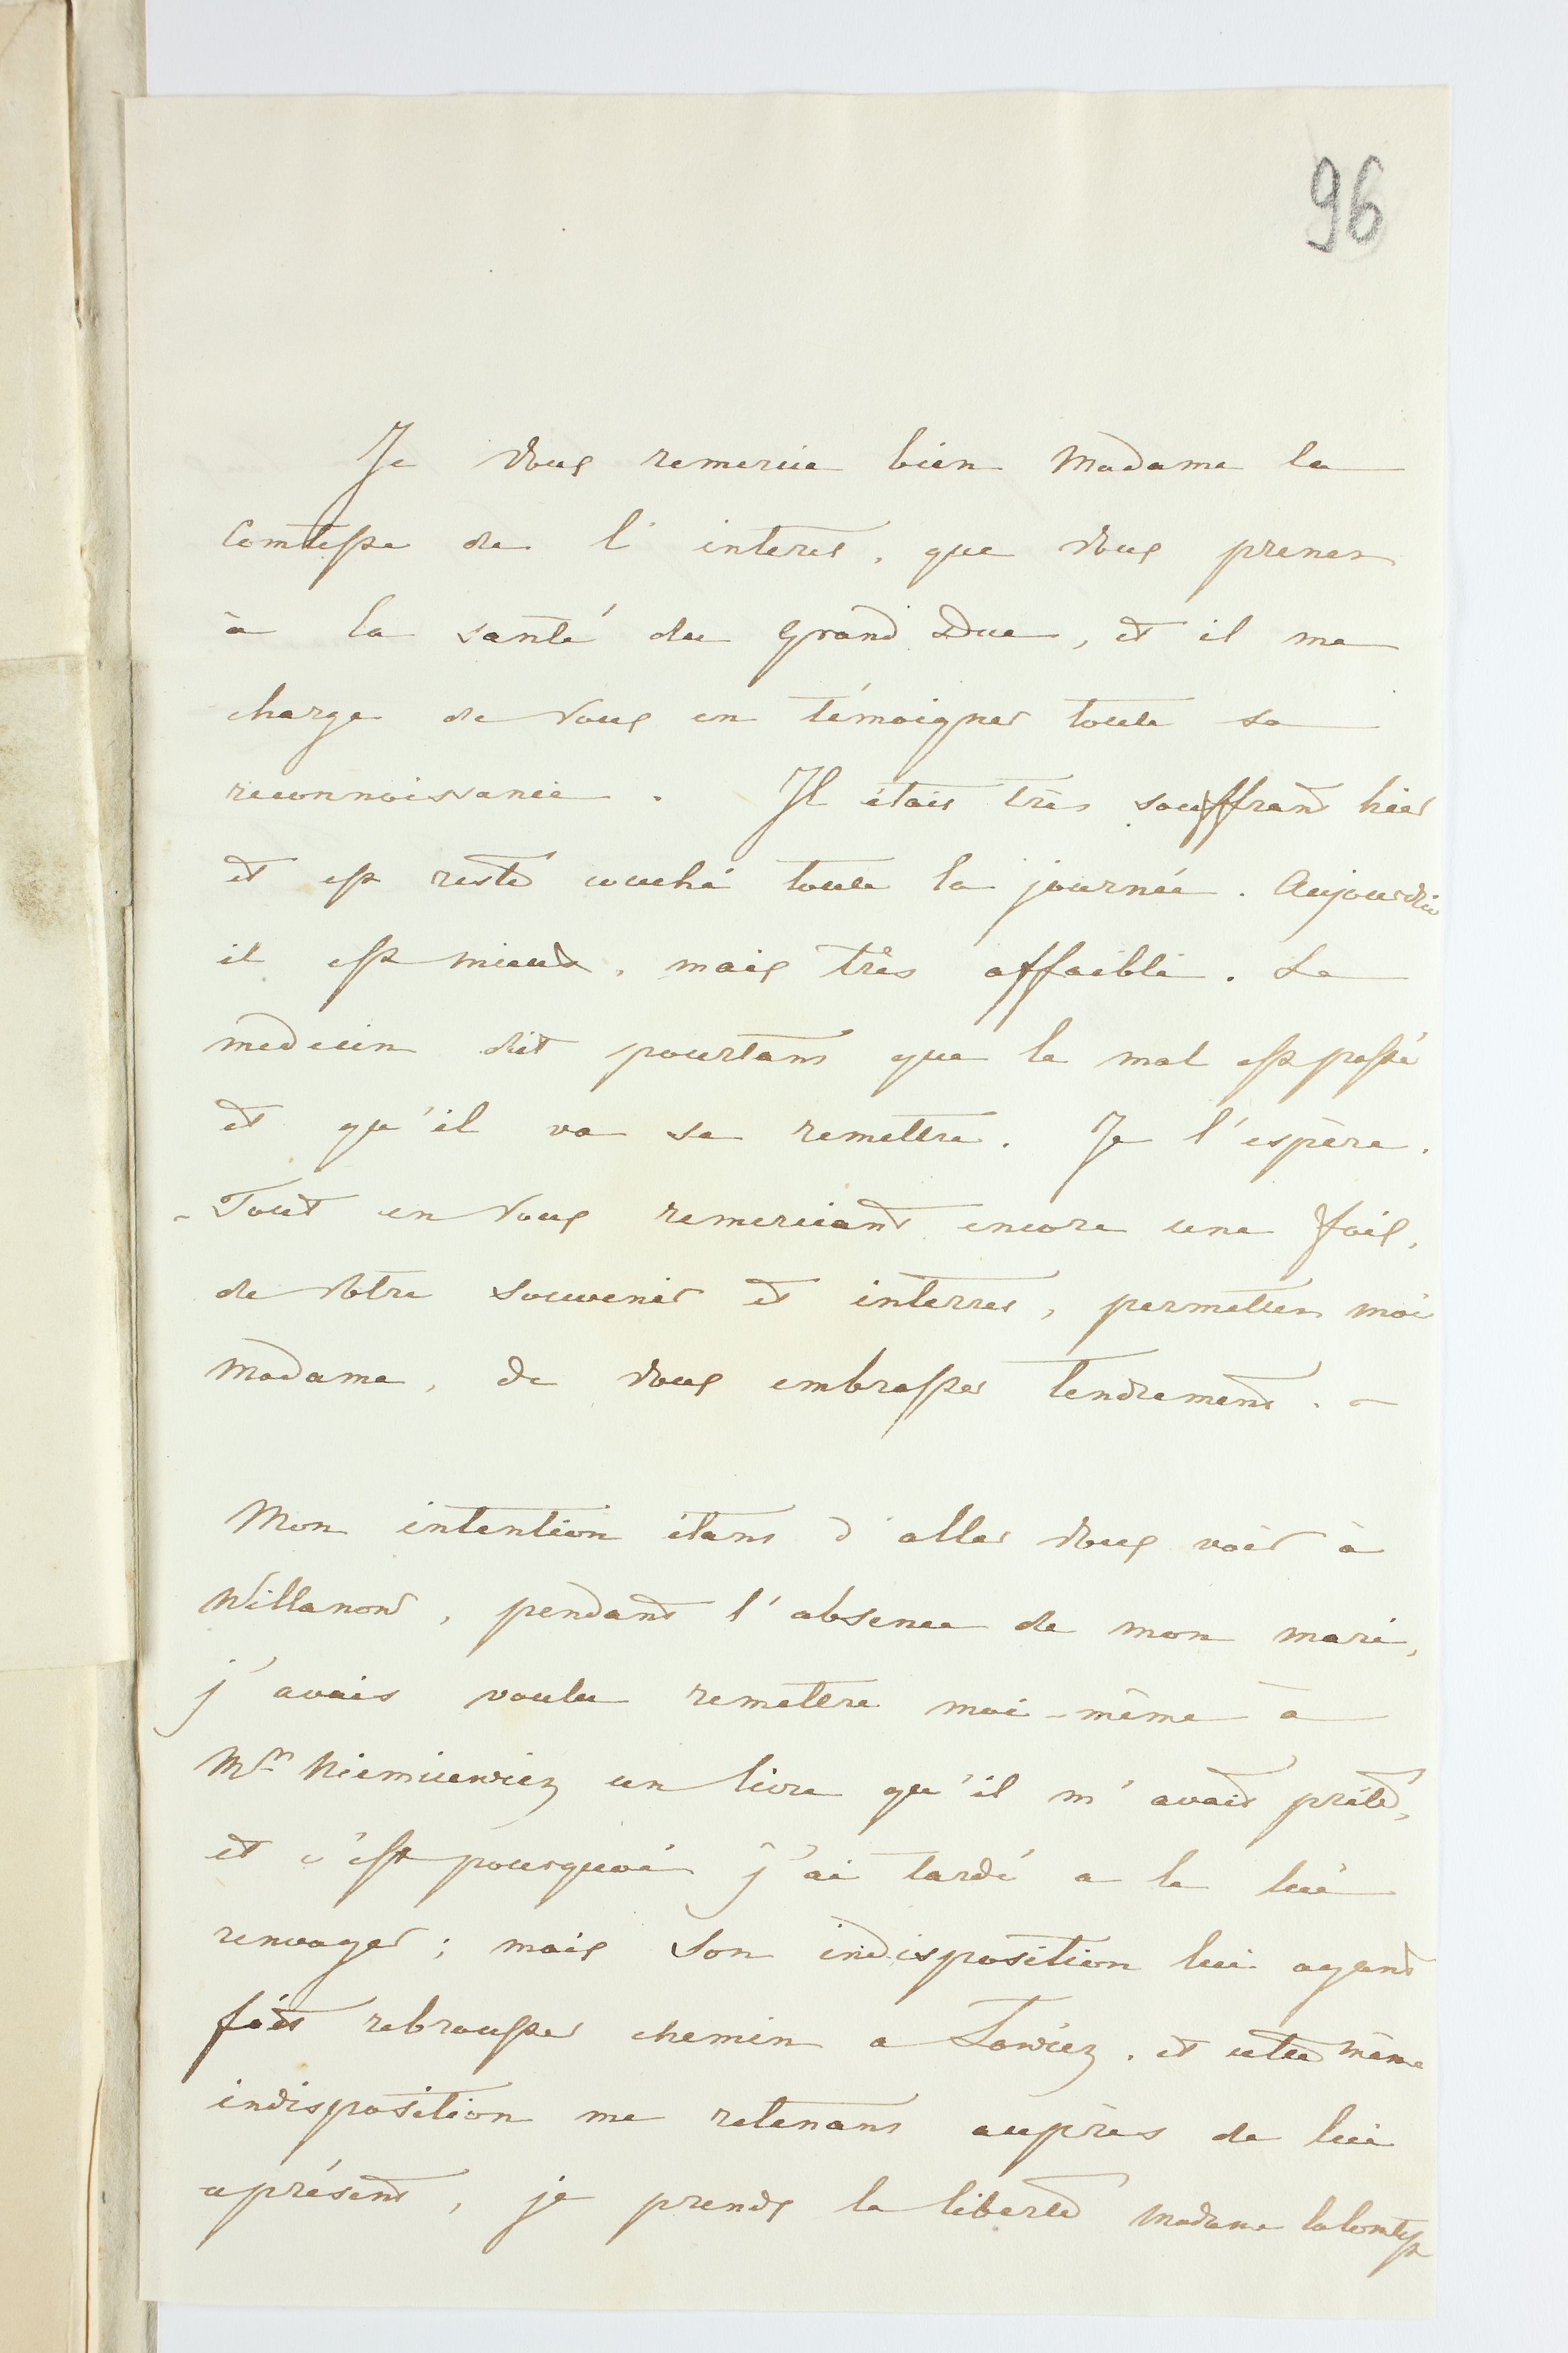 96
Je vous remercie bien Madame la
Comtesse de l'interet, que vous prenez
à la santé du Grand Duc, et il me
charge de vous en témoigner toute sa
reconnoissance. Il étoit très souffrant hier
et est resté couché toute la journée. Aujourdhui
il est mieux, mais très affaibli. Le
medecin dit pourtant que le mal est passé
et qu'il va se remettre. Je l'espère.
- Tout en vous remerciant encore une fois,
de votre souvenir et interret, permettez moi
Madame, de vous embrasser tendrement. -
Mon intention étant d'aller vous voir à
Willanow, pendant l'absence de mon mari,
j'avais voulu remettre moi-même à
Mr Niemcewicz un livre qu'il m'avait prété,
et c'est pourquoi j'ai tardé a le lui
renvoyer; mais son indisposition lui ayant
fait rebrousser chemin a Lowicz, et cette même
indisposition me retenant auprès de lui
aprésent, je prends la liberté Madame la Comtesse